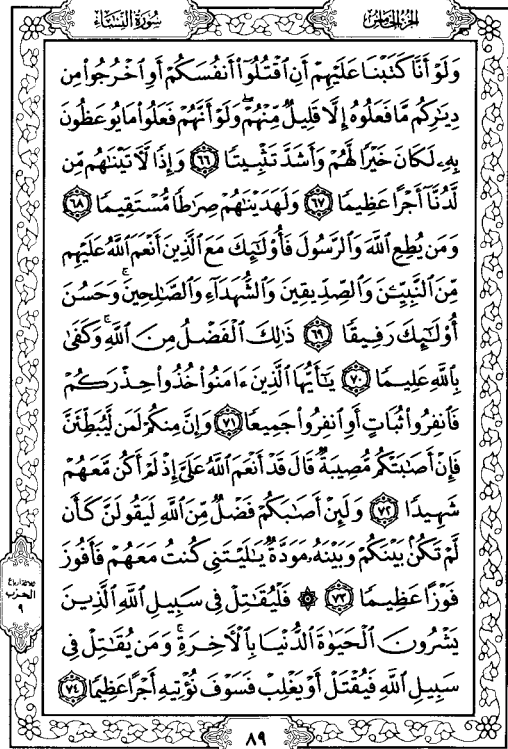 سُورَةُ النِّسَاءِ
الجُزْءُ الخَامِسُ
وَلَوْ أَنَّا كَتَبْنَا عَلَيْهِمْ أَنِ ٱقْتُلُوٓا۟ أَنفُسَكُمْ أَوِ ٱخْرُجُوا۟ مِن
دِيَٰرِكُم مَّا فَعَلُوهُ إِلَّا قَلِيلٌ مِّنْهُمْ ۖ وَلَوْ أَنَّهُمْ فَعَلُوا۟ مَا يُوعَظُونَ
بِهِۦ لَكَانَ خَيْرًا لَّهُمْ وَأَشَدَّ تَثْبِيتًا ٦٦ وَإِذًا لَّـَٔاتَيْنَٰهُم مِّن
لَّدُنَّآ أَجْرًا عَظِيمًا ٦٧ وَلَهَدَيْنَٰهُمْ صِرَٰطًا مُّسْتَقِيمًا ٦٨
وَمَن يُطِعِ ٱللَّهَ وَٱلرَّسُولَ فَأُو۟لَٰٓئِكَ مَعَ ٱلَّذِينَ أَنْعَمَ ٱللَّهُ عَلَيْهِم
مِّنَ ٱلنَّبِيِّـۧنَ وَٱلصِّدِّيقِينَ وَٱلشُّهَدَآءِ وَٱلصَّٰلِحِينَ ۚ وَحَسُنَ
أُو۟لَٰٓئِكَ رَفِيقًا ٦٩ ذَٰلِكَ ٱلْفَضْلُ مِنَ ٱللَّهِ ۚ وَكَفَىٰ
بِٱللَّهِ عَلِيمًا ٧٠ يَٰٓأَيُّهَا ٱلَّذِينَ ءَامَنُوا۟ خُذُوا۟ حِذْرَكُمْ
فَٱنفِرُوا۟ ثُبَاتٍ أَوِ ٱنفِرُوا۟ جَمِيعًا ٧١ وَإِنَّ مِنكُمْ لَمَن لَّيُبَطِّئَنَّ
فَإِنْ أَصَٰبَتْكُم مُّصِيبَةٌ قَالَ قَدْ أَنْعَمَ ٱللَّهُ عَلَىَّ إِذْ لَمْ أَكُن مَّعَهُمْ
شَهِيدًا ٧٢ وَلَئِنْ أَصَٰبَكُمْ فَضْلٌ مِّنَ ٱللَّهِ لَيَقُولَنَّ كَأَن
لَّمْ تَكُنۢ بَيْنَكُمْ وَبَيْنَهُۥ مَوَدَّةٌ يَٰلَيْتَنِى كُنتُ مَعَهُمْ فَأَفُوزَ
فَوْزًا عَظِيمًا ٧٣ ۞ فَلْيُقَٰتِلْ فِى سَبِيلِ ٱللَّهِ ٱلَّذِينَ
يَشْرُونَ ٱلْحَيَوٰةَ ٱلدُّنْيَا بِٱلْـَٔاخِرَةِ ۚ وَمَن يُقَٰتِلْ فِى
سَبِيلِ ٱللَّهِ فَيُقْتَلْ أَوْ يَغْلِبْ فَسَوْفَ نُؤْتِيهِ أَجْرًا عَظِيمًا ٧٤
الحزب
٩
٨٩